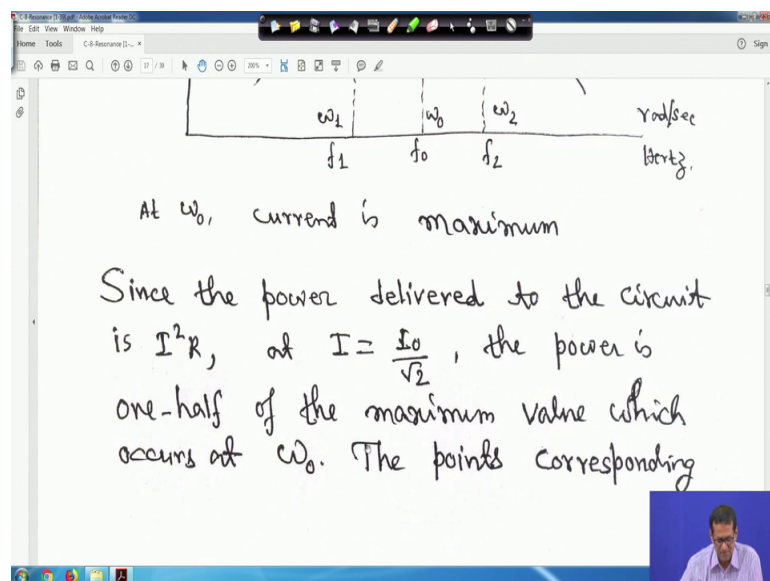 C-8-Resonance [1-19].pdf - Adobe Acrobat Reader DC
File Edit View Window Help
Home Tools C-8-Resonance [1-... × Sign
17 / 19 200%
ω1 ω0 ω2 rad/sec
f1 f0 f2 Hertz.
At ω0, current is maximum
Since the power delivered to the circuit
is I²R, at I = I0/√2, the power is
one-half of the maximum value which
occurs at ω0. The points corresponding